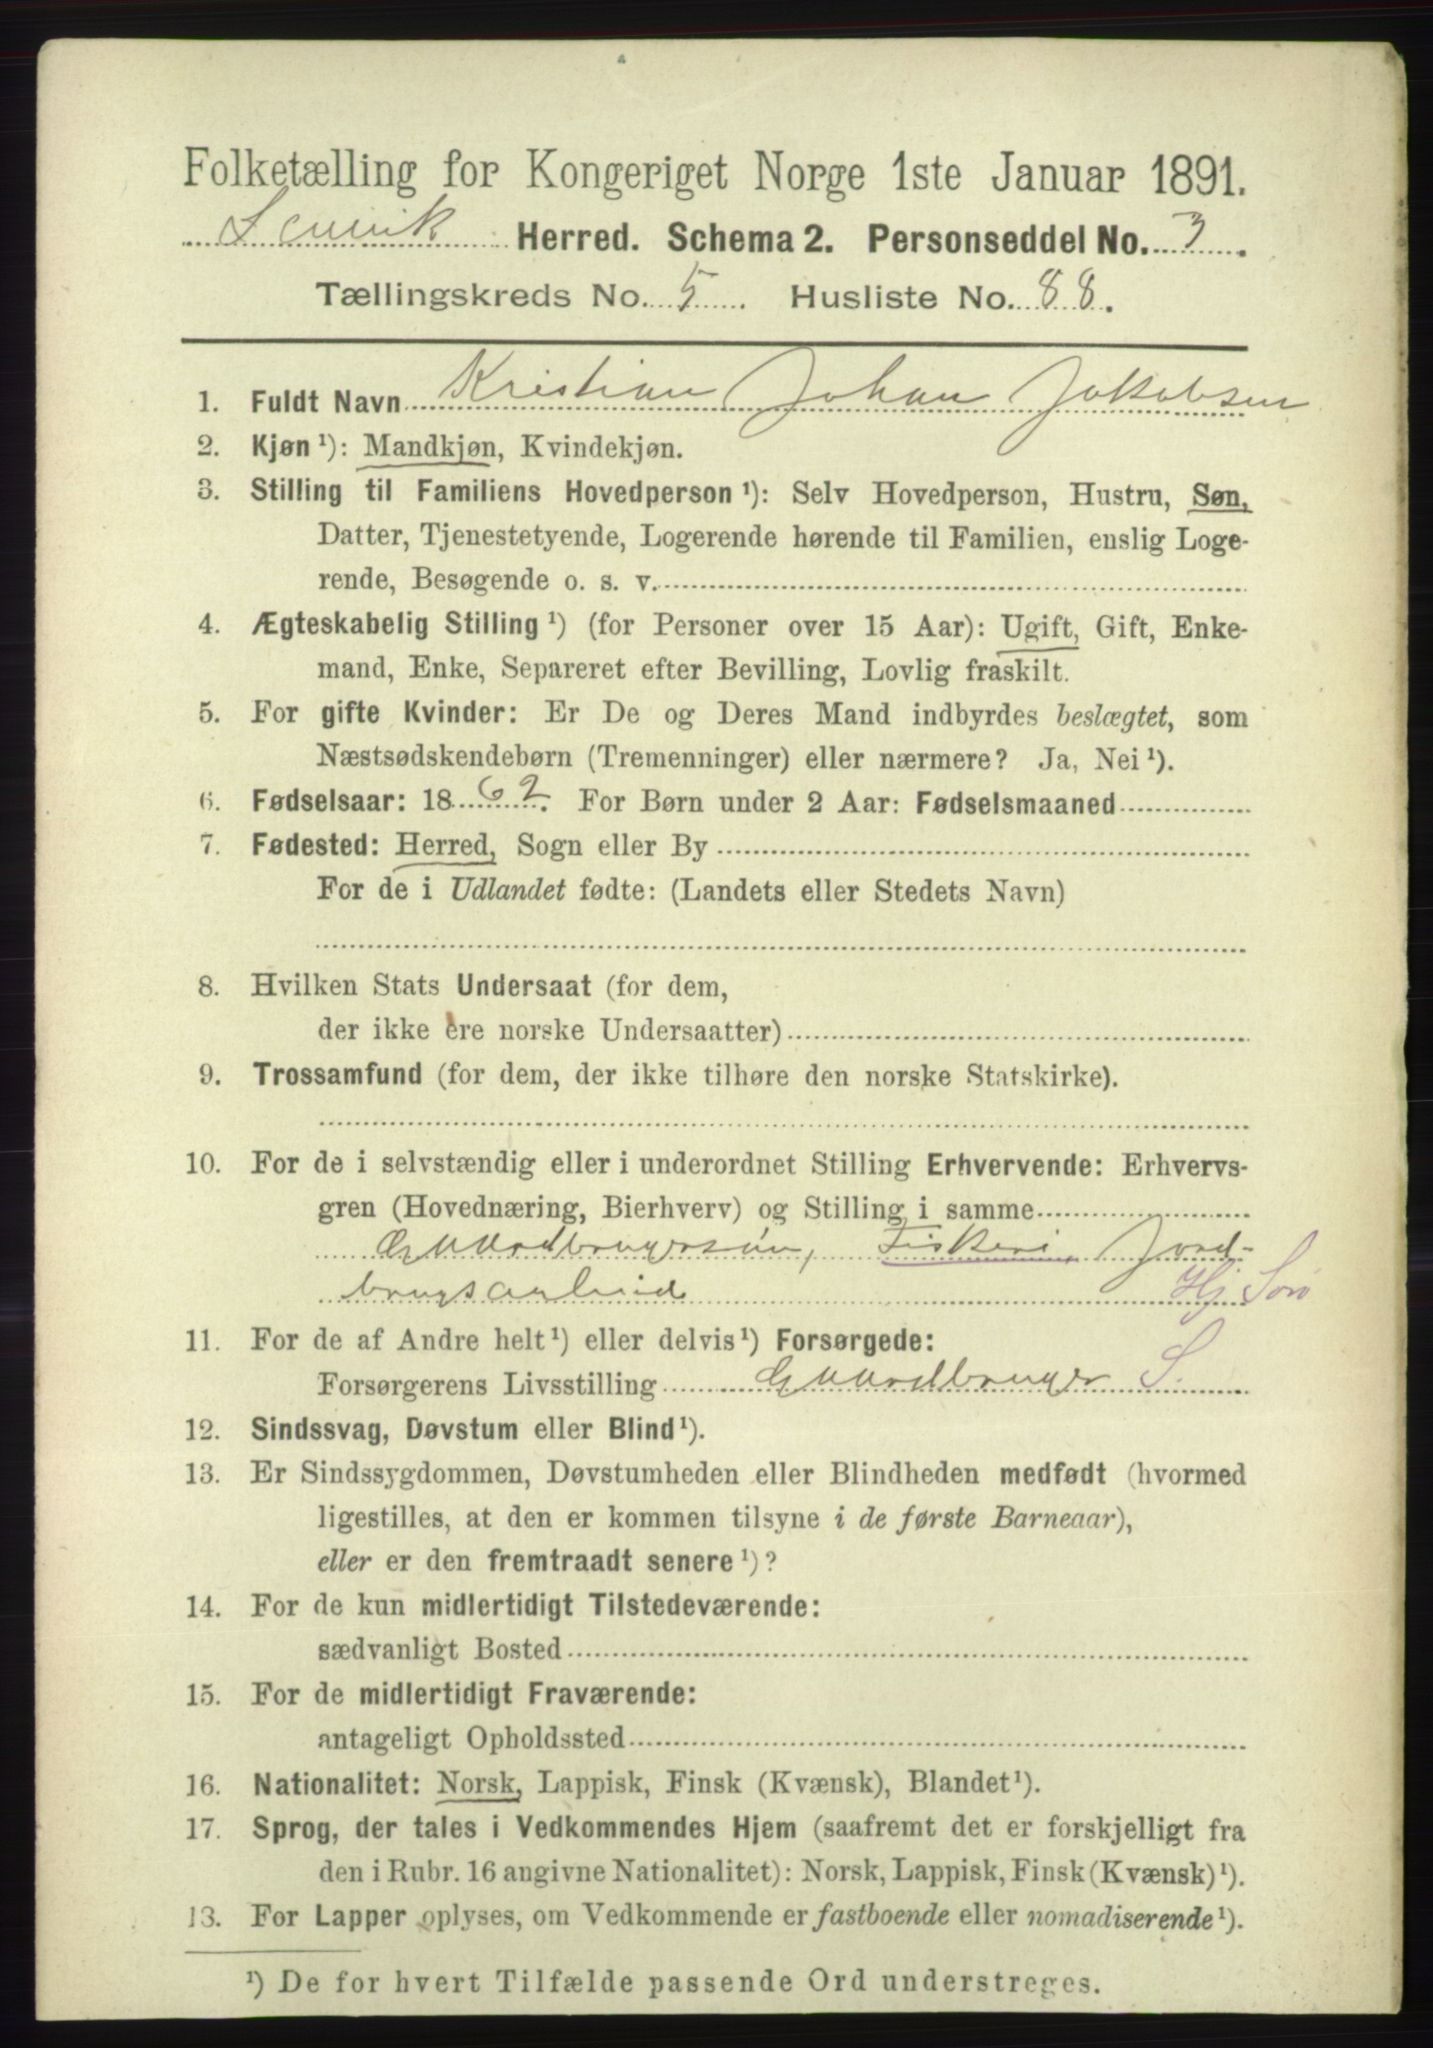 Folketælling for Kongeriget Norge 1ste Januar 1891.
Lenvik Herred. Schema 2. Personseddel No. 3.
Tællingskreds No. 5. Husliste No. 88.
1. Fuldt Navn Kristian Johan Jakobsen
2. Kjøn ¹): Mandkjøn, Kvindekjøn.
3. Stilling til Familiens Hovedperson ¹): Selv Hovedperson, Hustru, Søn,
Datter, Tjenestetyende, Logerende hørende til Familien, enslig Loge-
rende, Besøgende o. s. v.
4. Ægteskabelig Stilling ¹) (for Personer over 15 Aar): Ugift, Gift, Enke-
mand, Enke, Separeret efter Bevilling, Lovlig fraskilt.
5. For gifte Kvinder: Er De og Deres Mand indbyrdes beslægtet, som
Næstsødskendebørn (Tremenninger) eller nærmere? Ja, Nei ¹).
6. Fødselsaar: 1862. For Børn under 2 Aar: Fødselsmaaned
7. Fødested: Herred, Sogn eller By
For de i Udlandet fødte: (Landets eller Stedets Navn)
8. Hvilken Stats Undersaat (for dem,
der ikke ere norske Undersaatter)
9. Trossamfund (for dem, der ikke tilhøre den norske Statskirke).
10. For de i selvstændig eller i underordnet Stilling Erhvervende: Erhvervs-
gren (Hovednæring, Bierhverv) og Stilling i samme
Gaardbrugersøn, Fiskeri, Jord-
brugsarbeid Hj
11. For de af Andre helt ¹) eller delvis ¹) Forsørgede:
Forsørgerens Livsstilling Gaardbruger S.
12. Sindssvag, Døvstum eller Blind ¹).
13. Er Sindssygdommen, Døvstumheden eller Blindheden medfødt (hvormed
ligestilles, at den er kommen tilsyne i de første Barneaar),
eller er den fremtraadt senere ¹)?
14. For de kun midlertidigt Tilstedeværende:
sædvanligt Bosted
15. For de midlertidigt Fraværende:
antageligt Opholdssted
16. Nationalitet: Norsk, Lappisk, Finsk (Kvænsk), Blandet ¹).
17. Sprog, der tales i Vedkommendes Hjem (saafremt det er forskjelligt fra
den i Rubr. 16 angivne Nationalitet): Norsk, Lappisk, Finsk (Kvænsk) ¹).
13. For Lapper oplyses, om Vedkommende er fastboende eller nomadiserende ¹).
¹) De for hvert Tilfælde passende Ord understreges.